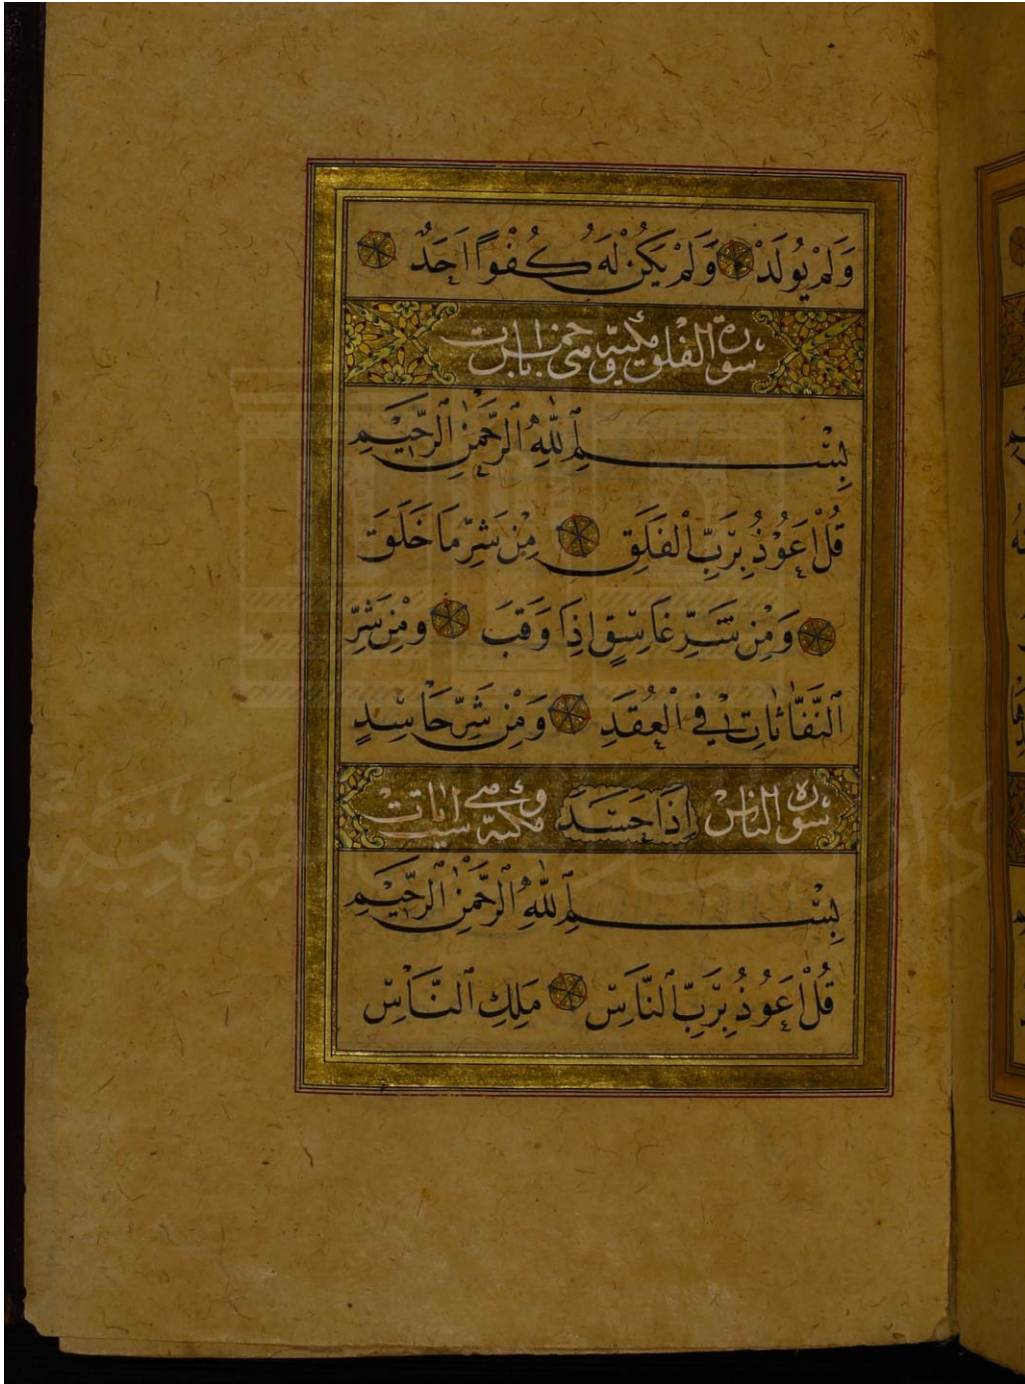 وَلَمْ يُولَدْ وَلَمْ يَكُنْ لَهُ كُفُوًا اَحَدٌ
سورة الفلق مكية وهي خمس ايات
بِسْمِ ٱللّٰهِ ٱلرَّحْمٰنِ ٱلرَّحِيْمِ
قُلْ اَعُوْذُ بِرَبِّ ٱلْفَلَقِ مِنْ شَرِّ مَا خَلَقَ
وَمِنْ شَرِّ غَاسِقٍ اِذَا وَقَبَ وَمِنْ شَرِّ
ٱلنَّفّٰاثٰاتِ فِي ٱلْعُقَدِ وَمِنْ شَرِّ حَاسِدٍ
سورة الناس اِذَا حَسَدَ مكية وهي ست ايات
بِسْمِ ٱللّٰهِ ٱلرَّحْمٰنِ ٱلرَّحِيْمِ
قُلْ اَعُوْذُ بِرَبِّ ٱلنَّاسِ مَلِكِ ٱلنَّاسِ